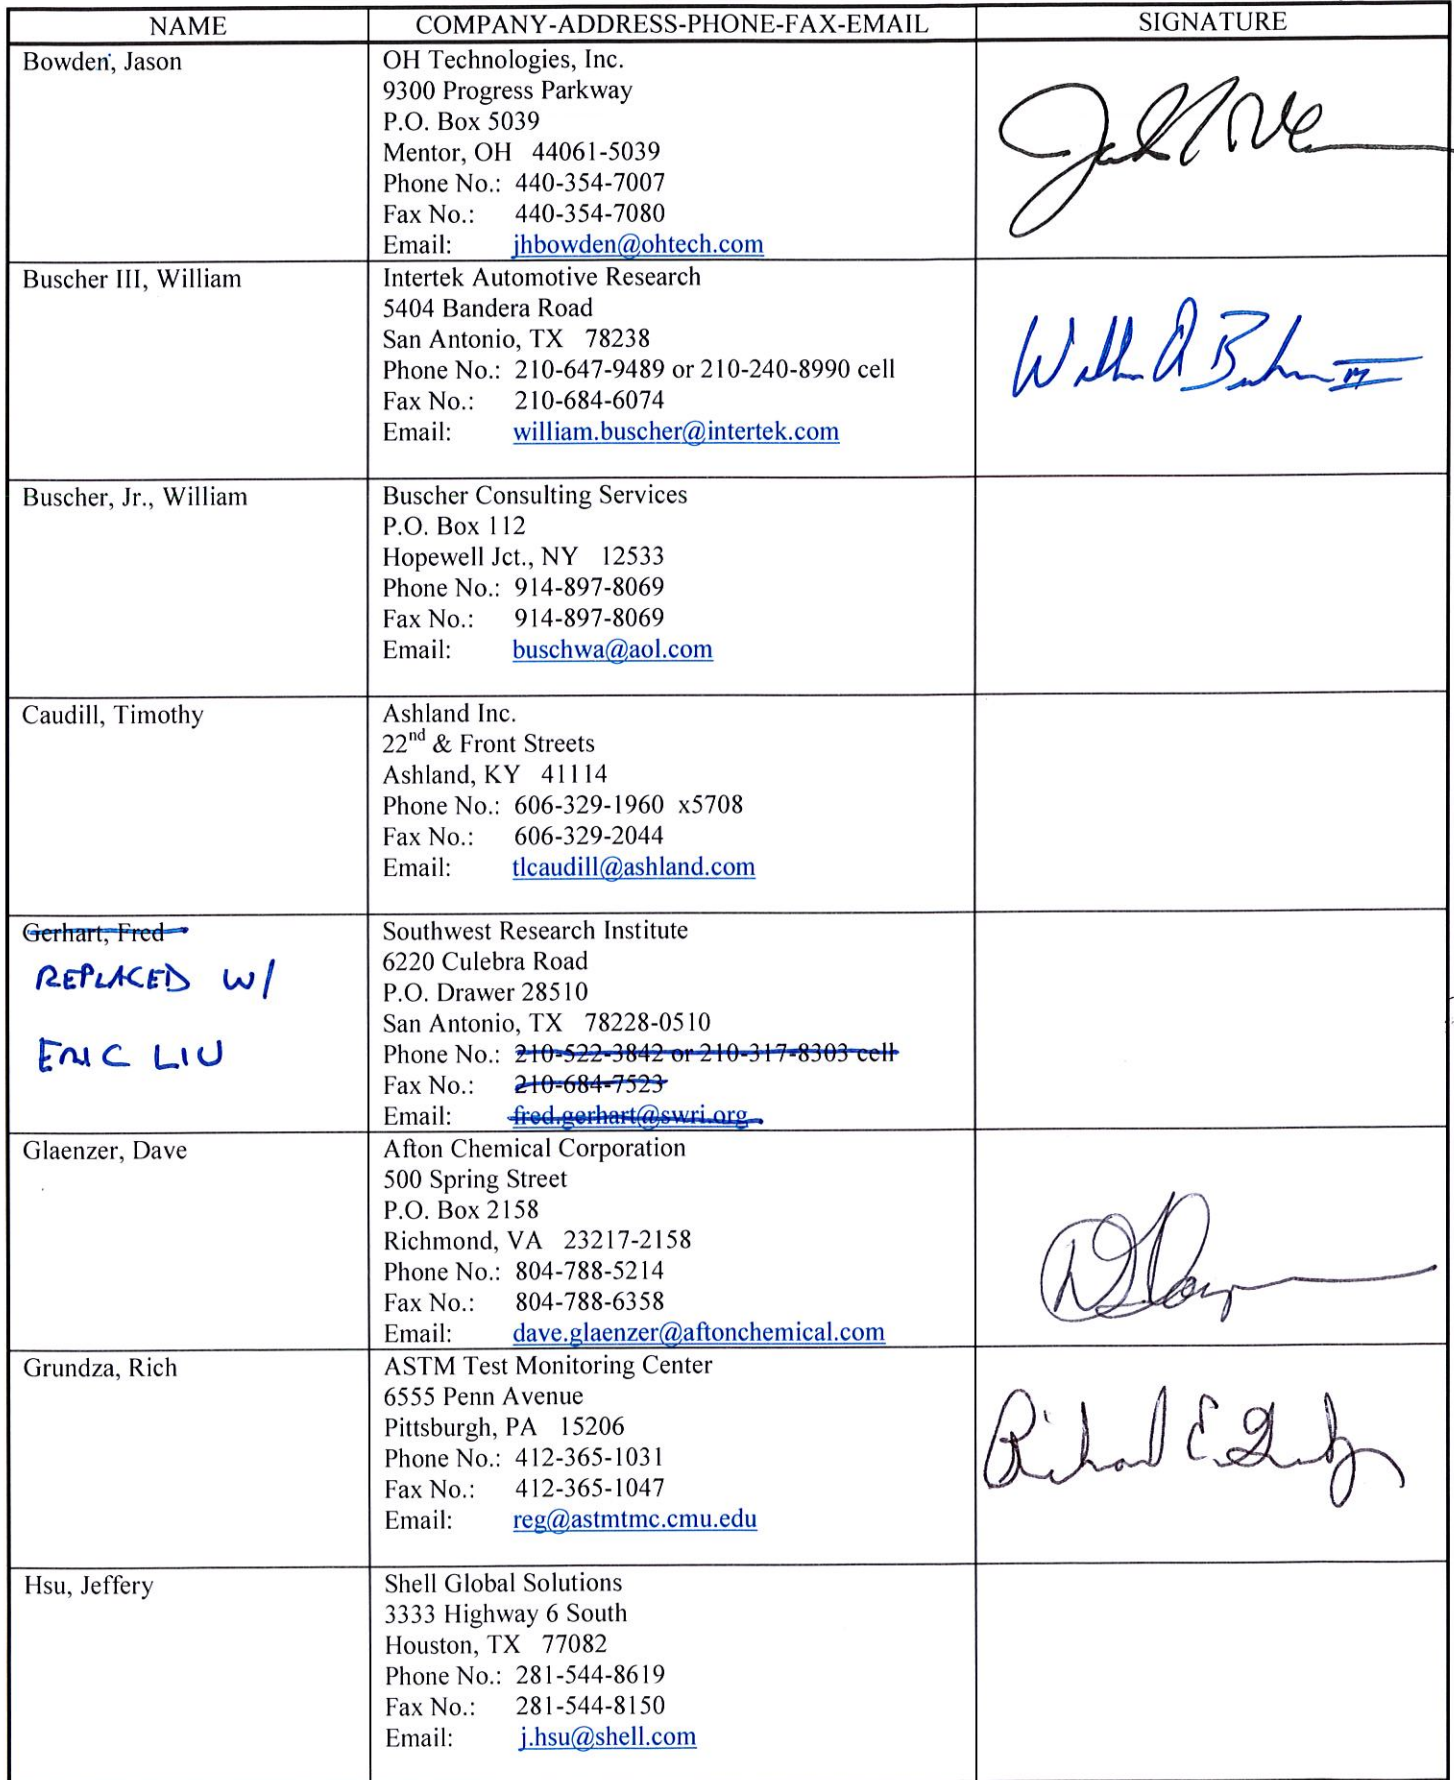 NAME COMPANY-ADDRESS-PHONE-FAX-EMAIL SIGNATURE
Bowden, Jason
OH Technologies, Inc.
9300 Progress Parkway
P.O. Box 5039
Mentor, OH 44061-5039
Phone No.: 440-354-7007
Fax No.: 440-354-7080
Email: jhbowden@ohtech.com
Buscher III, William
Intertek Automotive Research
5404 Bandera Road
San Antonio, TX 78238
Phone No.: 210-647-9489 or 210-240-8990 cell
Fax No.: 210-684-6074
Email: william.buscher@intertek.com
Buscher, Jr., William
Buscher Consulting Services
P.O. Box 112
Hopewell Jct., NY 12533
Phone No.: 914-897-8069
Fax No.: 914-897-8069
Email: buschwa@aol.com
Caudill, Timothy
Ashland Inc.
22nd & Front Streets
Ashland, KY 41114
Phone No.: 606-329-1960 x5708
Fax No.: 606-329-2044
Email: tlcaudill@ashland.com
Gerhart, Fred
REPLACED W/
ERIC LIU
Southwest Research Institute
6220 Culebra Road
P.O. Drawer 28510
San Antonio, TX 78228-0510
Phone No.: 210-522-3842 or 210-317-8303 cell
Fax No.: 210-684-7523
Email: fred.gerhart@swri.org
Glaenzer, Dave
Afton Chemical Corporation
500 Spring Street
P.O. Box 2158
Richmond, VA 23217-2158
Phone No.: 804-788-5214
Fax No.: 804-788-6358
Email: dave.glaenzer@aftonchemical.com
Grundza, Rich
ASTM Test Monitoring Center
6555 Penn Avenue
Pittsburgh, PA 15206
Phone No.: 412-365-1031
Fax No.: 412-365-1047
Email: reg@astmtmc.cmu.edu
Richard E. Grundza
Hsu, Jeffery
Shell Global Solutions
3333 Highway 6 South
Houston, TX 77082
Phone No.: 281-544-8619
Fax No.: 281-544-8150
Email: j.hsu@shell.com